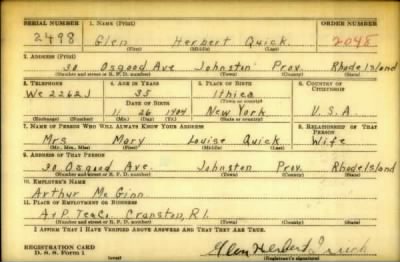 SERIAL NUMBER 1. NAME (Print) ORDER NUMBER
2498 Glen Herbert Quick 2048
(First) (Middle) (Last)
2. ADDRESS (Print)
30 Osgood Ave Johnston Prov. Rhode Island
(Number and street or R. F. D. number) (Town) (County) (State)
3. TELEPHONE 4. AGE IN YEARS 5. PLACE OF BIRTH 6. COUNTRY OF CITIZENSHIP
We 2262J 35 Ithica
DATE OF BIRTH (Town or county)
11 26 1904 New York U.S.A.
(Exchange) (No.) (Mo.) (Day) (Yr.) (State or country)
7. NAME OF PERSON WHO WILL ALWAYS KNOW YOUR ADDRESS 8. RELATIONSHIP OF THAT PERSON
Mrs Mary Louise Quick Wife
(Mr., Mrs., Miss) (First) (Middle) (Last)
9. ADDRESS OF THAT PERSON
30 Osgood Ave. Johnston Prov. Rhode Island
(Number and street or R. F. D. number) (Town) (County) (State)
10. EMPLOYER'S NAME
Arthur Mc Ginn
11. PLACE OF EMPLOYMENT OR BUSINESS
A+P Tea Co. Cranston, R.I.
(Number and street or R. F. D. number) (Town) (County) (State)
I AFFIRM THAT I HAVE VERIFIED ABOVE ANSWERS AND THAT THEY ARE TRUE.
REGISTRATION CARD
D. S. S. Form 1 (over) Glen Herbert Quick
(Registrant's signature)